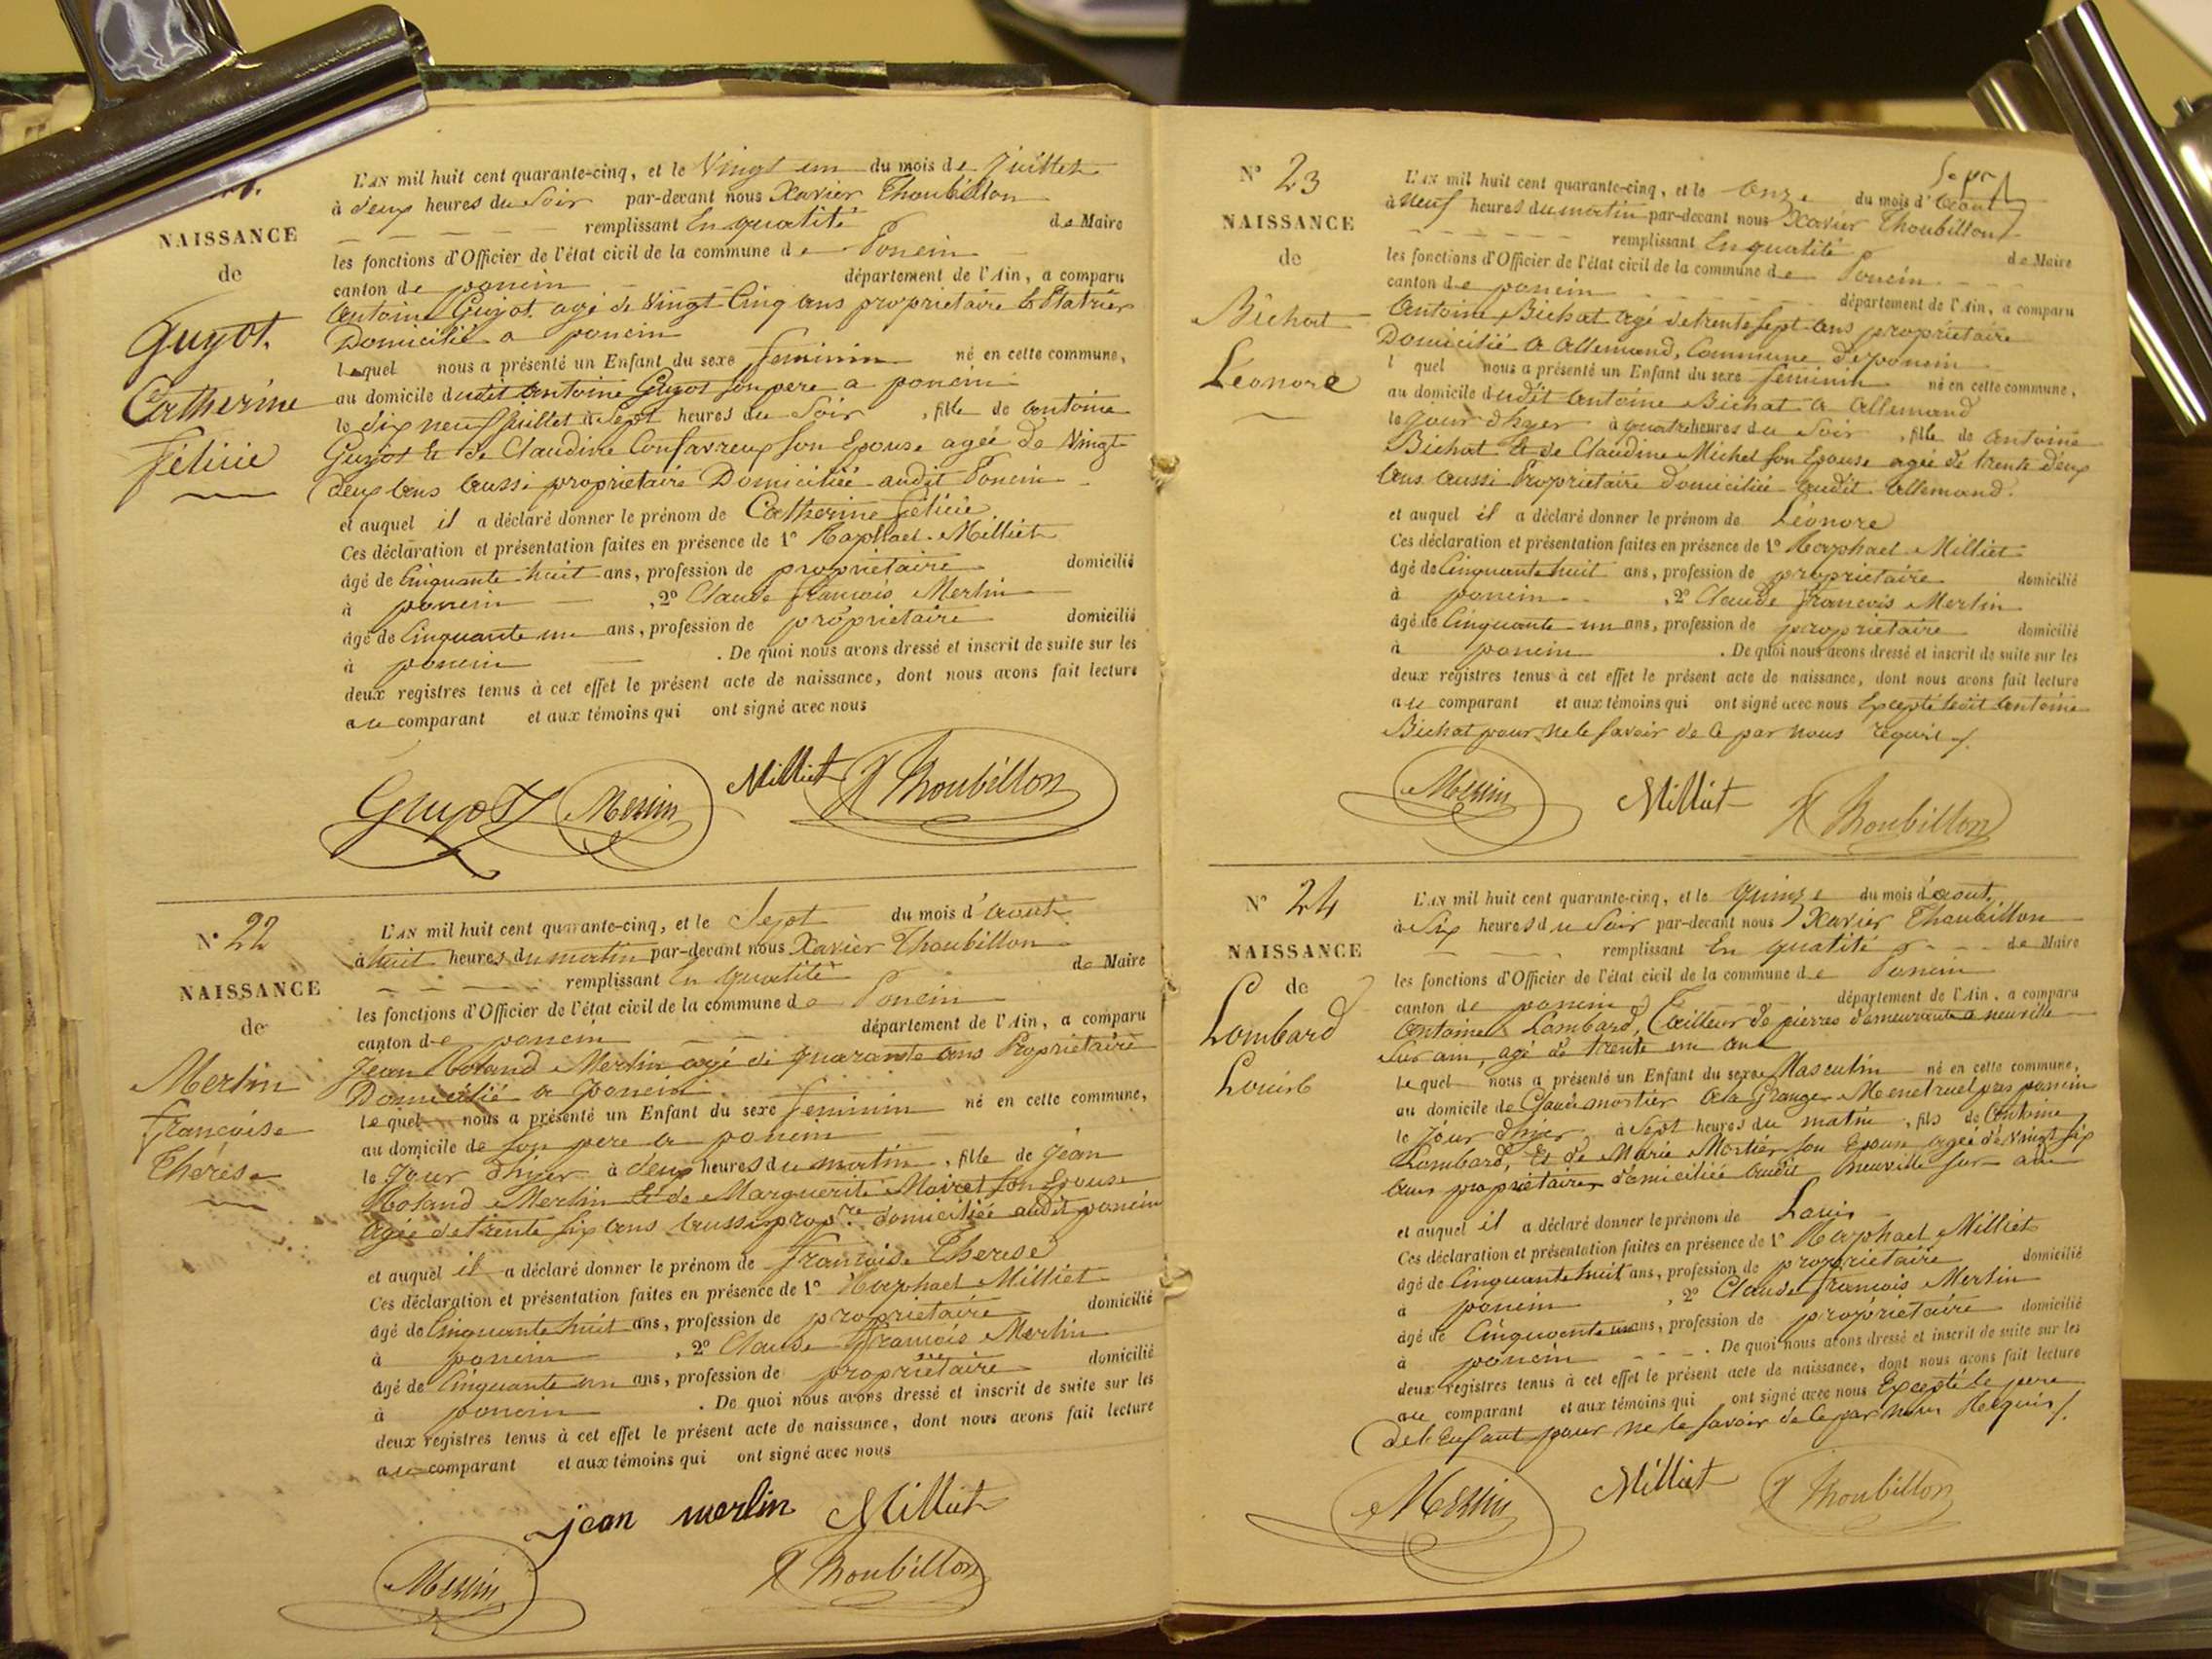 NAISSANCE
de
Guyot.
Catherine
félicie
L'AN mil huit cent quarante-cinq, et le Vingt un du mois de Juillet
à deux heures du Soir par-devant nous Xavier Thoubillon
remplissant En qualité de Maire
les fonctions d'Officier de l'état civil de la commune de Poncin
canton de poncin département de l'Ain, a comparu
antoine Guyot agé de Vingt Cinq ans propriétaire & Platrier
Domicilié a poncin
lequel nous a présenté un Enfant du sexe feminin né en cette commune,
au domicile dudit antoine Guyot son pere a poncin
le dix neuf juillet à Sept heures du Soir, fille de antoine
Guyot & de Claudine Confavreux son Epouse agée de Vingt
deux ans aussi propriétaire Domiciliée audit Poncin
et auquel il a déclaré donner le prénom de Catherine félicie
Ces déclaration et présentation faites en présence de 1° Raphael Milliet
âgé de Cinquante huit ans, profession de propriétaire domicilié
à poncin, 2° Claude francois Merlin
âgé de Cinquante un ans, profession de propriétaire domicilié
à poncin. De quoi nous avons dressé et inscrit de suite sur les
deux registres tenus à cet effet le présent acte de naissance, dont nous avons fait lecture
au comparant et aux témoins qui ont signé avec nous
Guyot Merlin Milliet X Thoubillon
N° 22
NAISSANCE
de
Merlin
francoise
Thérèse
L'AN mil huit cent quarante-cinq, et le Sept du mois d'aout
à huit heures du matin par-devant nous Xavier Thoubillon
remplissant En qualité de Maire
les fonctions d'Officier de l'état civil de la commune de Poncin
canton de poncin département de l'Ain, a comparu
Jean Roland Merlin agé de quarante ans Propriétaire
Domicilié a poncin
lequel nous a présenté un Enfant du sexe feminin né en cette commune,
au domicile de son pere a poncin
le Jour d'hyer à deux heures du matin, fille de jean
Roland Merlin & de Marguerite Moiret son Epouse
agée de trente six ans aussi prop.re domiciliée audit poncin
et auquel il a déclaré donner le prénom de francoise Therese
Ces déclaration et présentation faites en présence de 1° Raphael Milliet
âgé de Cinquante huit ans, profession de propriétaire domicilié
à poncin, 2° Claude francois Merlin
âgé de Cinquante un ans, profession de propriétaire domicilié
à poncin. De quoi nous avons dressé et inscrit de suite sur les
deux registres tenus à cet effet le présent acte de naissance, dont nous avons fait lecture
au comparant et aux témoins qui ont signé avec nous
jean merlin Milliet
Merlin X Thoubillon
N° 23
NAISSANCE
de
Bichat
Léonore
L'AN mil huit cent quarante-cinq, et le onze du mois d'aout
à neuf heures du matin par-devant nous Xavier Thoubillon
remplissant En qualité de Maire
les fonctions d'Officier de l'état civil de la commune de Poncin
canton de poncin département de l'Ain, a comparu
antoine Bichat agé de trente sept ans propriétaire
Domicilié a allemand, Commune de poncin
lequel nous a présenté un Enfant du sexe feminin né en cette commune,
au domicile dudit antoine Bichat a allemand
le jour d'hyer à quatre heures du Soir, fille de antoine
Bichat & de Claudine Michel son Epouse agée de trente deux
ans aussi Propriétaire domiciliée audit allemand.
et auquel il a déclaré donner le prénom de Léonore
Ces déclaration et présentation faites en présence de 1° Raphael Milliet
âgé de Cinquante huit ans, profession de propriétaire domicilié
à poncin, 2° Claude francois Merlin
âgé de Cinquante un ans, profession de propriétaire domicilié
à poncin. De quoi nous avons dressé et inscrit de suite sur les
deux registres tenus à cet effet le présent acte de naissance, dont nous avons fait lecture
au comparant et aux témoins qui ont signé avec nous Excepté ledit antoine
Bichat pour ne le savoir de ce par nous requis
Merlin Milliet X Thoubillon
N° 24
NAISSANCE
de
Lombard
Louis
L'AN mil huit cent quarante-cinq, et le quinze du mois d'aout
à Six heures du Soir par-devant nous Xavier Thoubillon
remplissant En qualité de Maire
les fonctions d'Officier de l'état civil de la commune de Poncin
canton de poncin département de l'Ain, a comparu
antoine Lombard, Tailleur de pierres demeurant a neuville
sur ain, agé de trente un ans
lequel nous a présenté un Enfant du sexe Masculin né en cette commune,
au domicile de Claude mortier a la Grange Menetruel pres poncin
le jour d'hyer à Sept heures du matin, fils de antoine
Lombard, & de Marie Mortier son Epouse agée de Vingt six
ans propriétaires domiciliée audit Neuville sur ain
et auquel il a déclaré donner le prénom de Louis
Ces déclaration et présentation faites en présence de 1° Raphael Milliet
âgé de Cinquante huit ans, profession de propriétaire domicilié
à poncin, 2° Claude francois Merlin
âgé de Cinquante un ans, profession de propriétaire domicilié
à poncin. De quoi nous avons dressé et inscrit de suite sur les
deux registres tenus à cet effet le présent acte de naissance, dont nous avons fait lecture
au comparant et aux témoins qui ont signé avec nous Excepté le pere
de l'enfant pour ne le savoir de ce par nous Requis
Merlin Milliet X Thoubillon